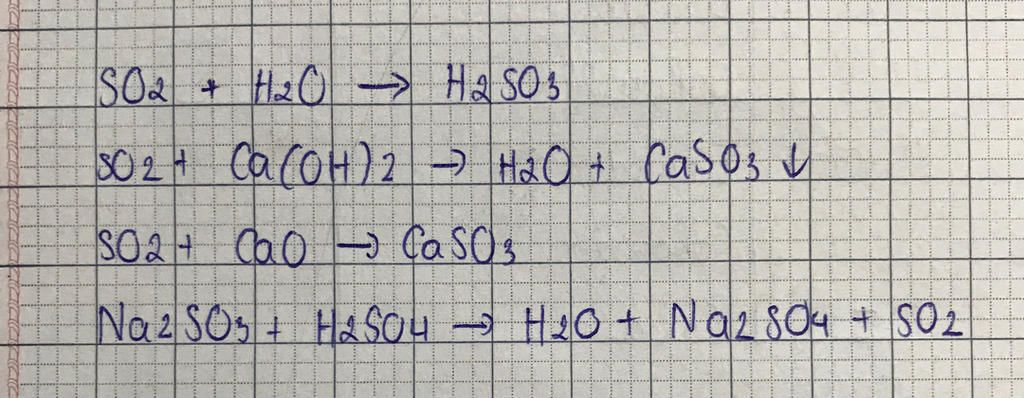 SO2 + H2O → H2SO3
SO2 + Ca(OH)2 → H2O + CaSO3 ↓
SO2 + CaO → CaSO3
Na2SO3 + H2SO4 → H2O + Na2SO4 + SO2